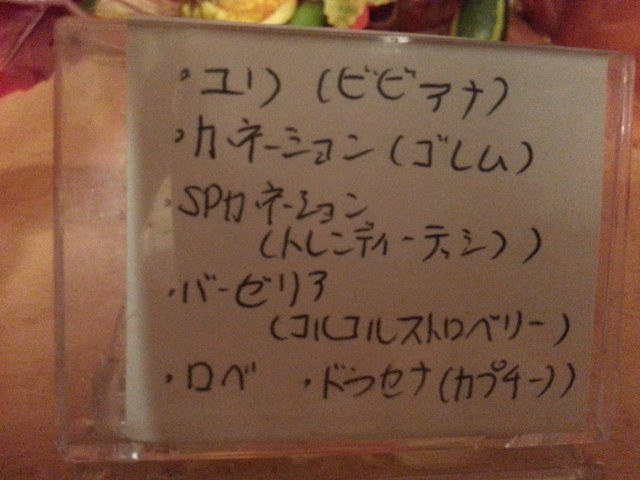 ・ユリ (ビビアナ)
・カネーション (ゴレム)
・SPカネーション
(トレンディーテッシノ)
・バーゼリア
(コルコルストロベリー)
・ロベ ・ドラセナ (カプチーノ)